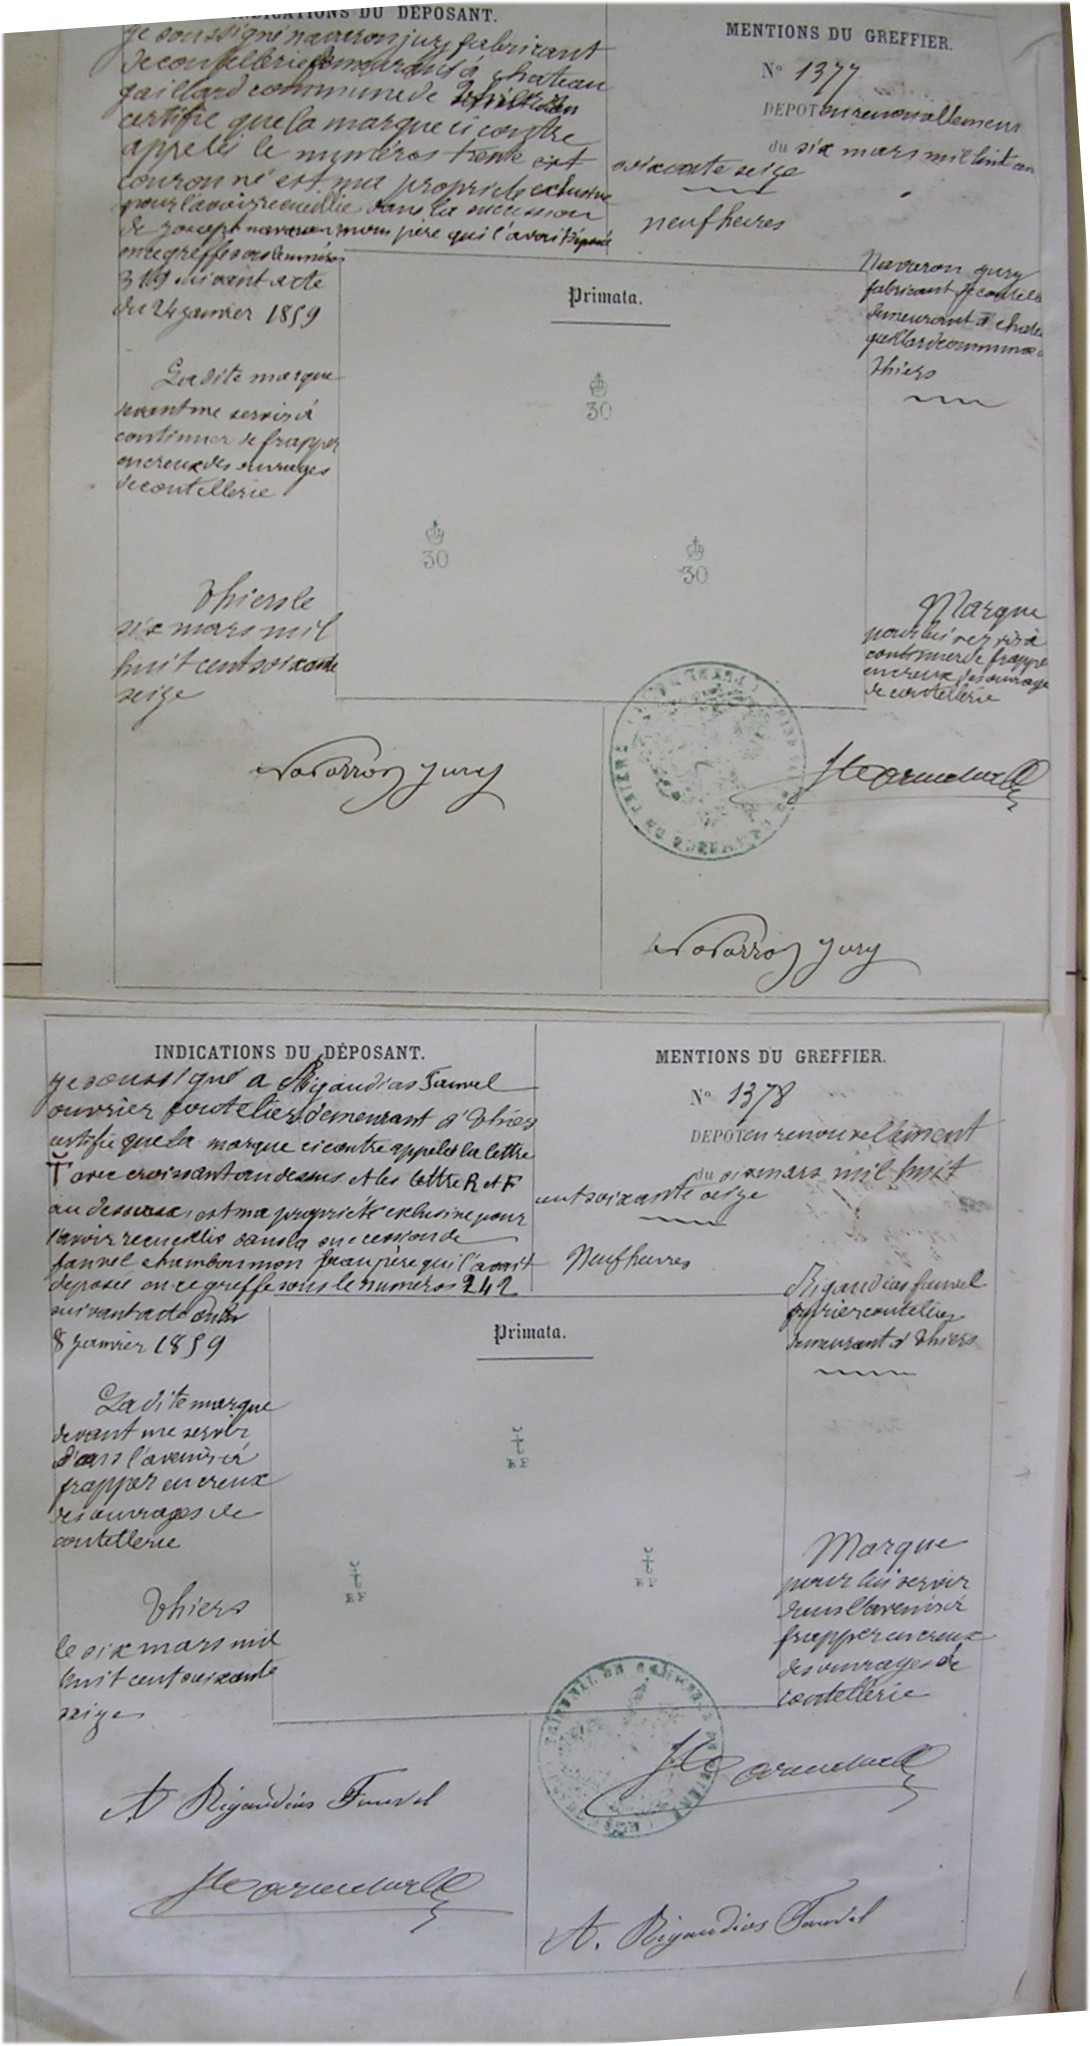 INDICATIONS DU DÉPOSANT.
je soussigné navaron jury fabricant
de coutellerie demeurant à chateau
gaillard commune de
certifie que la marque ci contre
appelée le numéros trente est
couronné est ma propriete exclusive
pour l'avoir recueillie dans la succession
de joseph navaron mon père qui l'avait déposée
au greffe sous le numéros
319 suivant acte
du 24 janvier 1859
La dite marque
devant me servir à
continuer de frapper
en creux des ouvrages
de coutellerie
Thiers le
six mars mil
huit cent soixante
seize
Navarron Jury
MENTIONS DU GREFFIER.
N° 1377
DEPOT en renouvellement
du six mars mil huit cen
soixante seize
neuf heures
Navaron jury
fabricant de coutelle
demeurant à chateau
gaillard commune de
Thiers
Primata.
30
30
30
Marque
pour lui servir à
continuer de frapper
en creux des ouvrage
de coutellerie
Navarron Jury
INDICATIONS DU DÉPOSANT.
je soussigné A Rigaudias Fauvel
ouvrier coutelier demeurant à Thiers
certifie que la marque ci contre appelée la lettre
T avec croissant au dessus et les lettre R et F
au dessous, est ma propriété exclusive pour
l'avoir recueillie dans la succession de
fauvel chambon mon beau père qui l'avait
deposée au ce greffe sous le numéros 242
suivant acte du
8 janvier 1859
La dite marque
devant me servir
dans l'avenir à
frapper en creux
des ouvrages de
coutellerie
Thiers
le six mars mil
huit cent soixante
seize
A. Rigaudias Fauvel
MENTIONS DU GREFFIER.
N° 1378
DEPOT en renouvellement
du six mars mil huit
cent soixante seize
Neuf heures
Rigaudias fauvel
ouvrier coutelier
demeurant à Thiers
Primata.
t
RF
t
RF
t
RF
Marque
pour lui servir
dans l'avenir à
frapper en creux
des ouvrages de
coutellerie
A. Rigaudias Fauvel